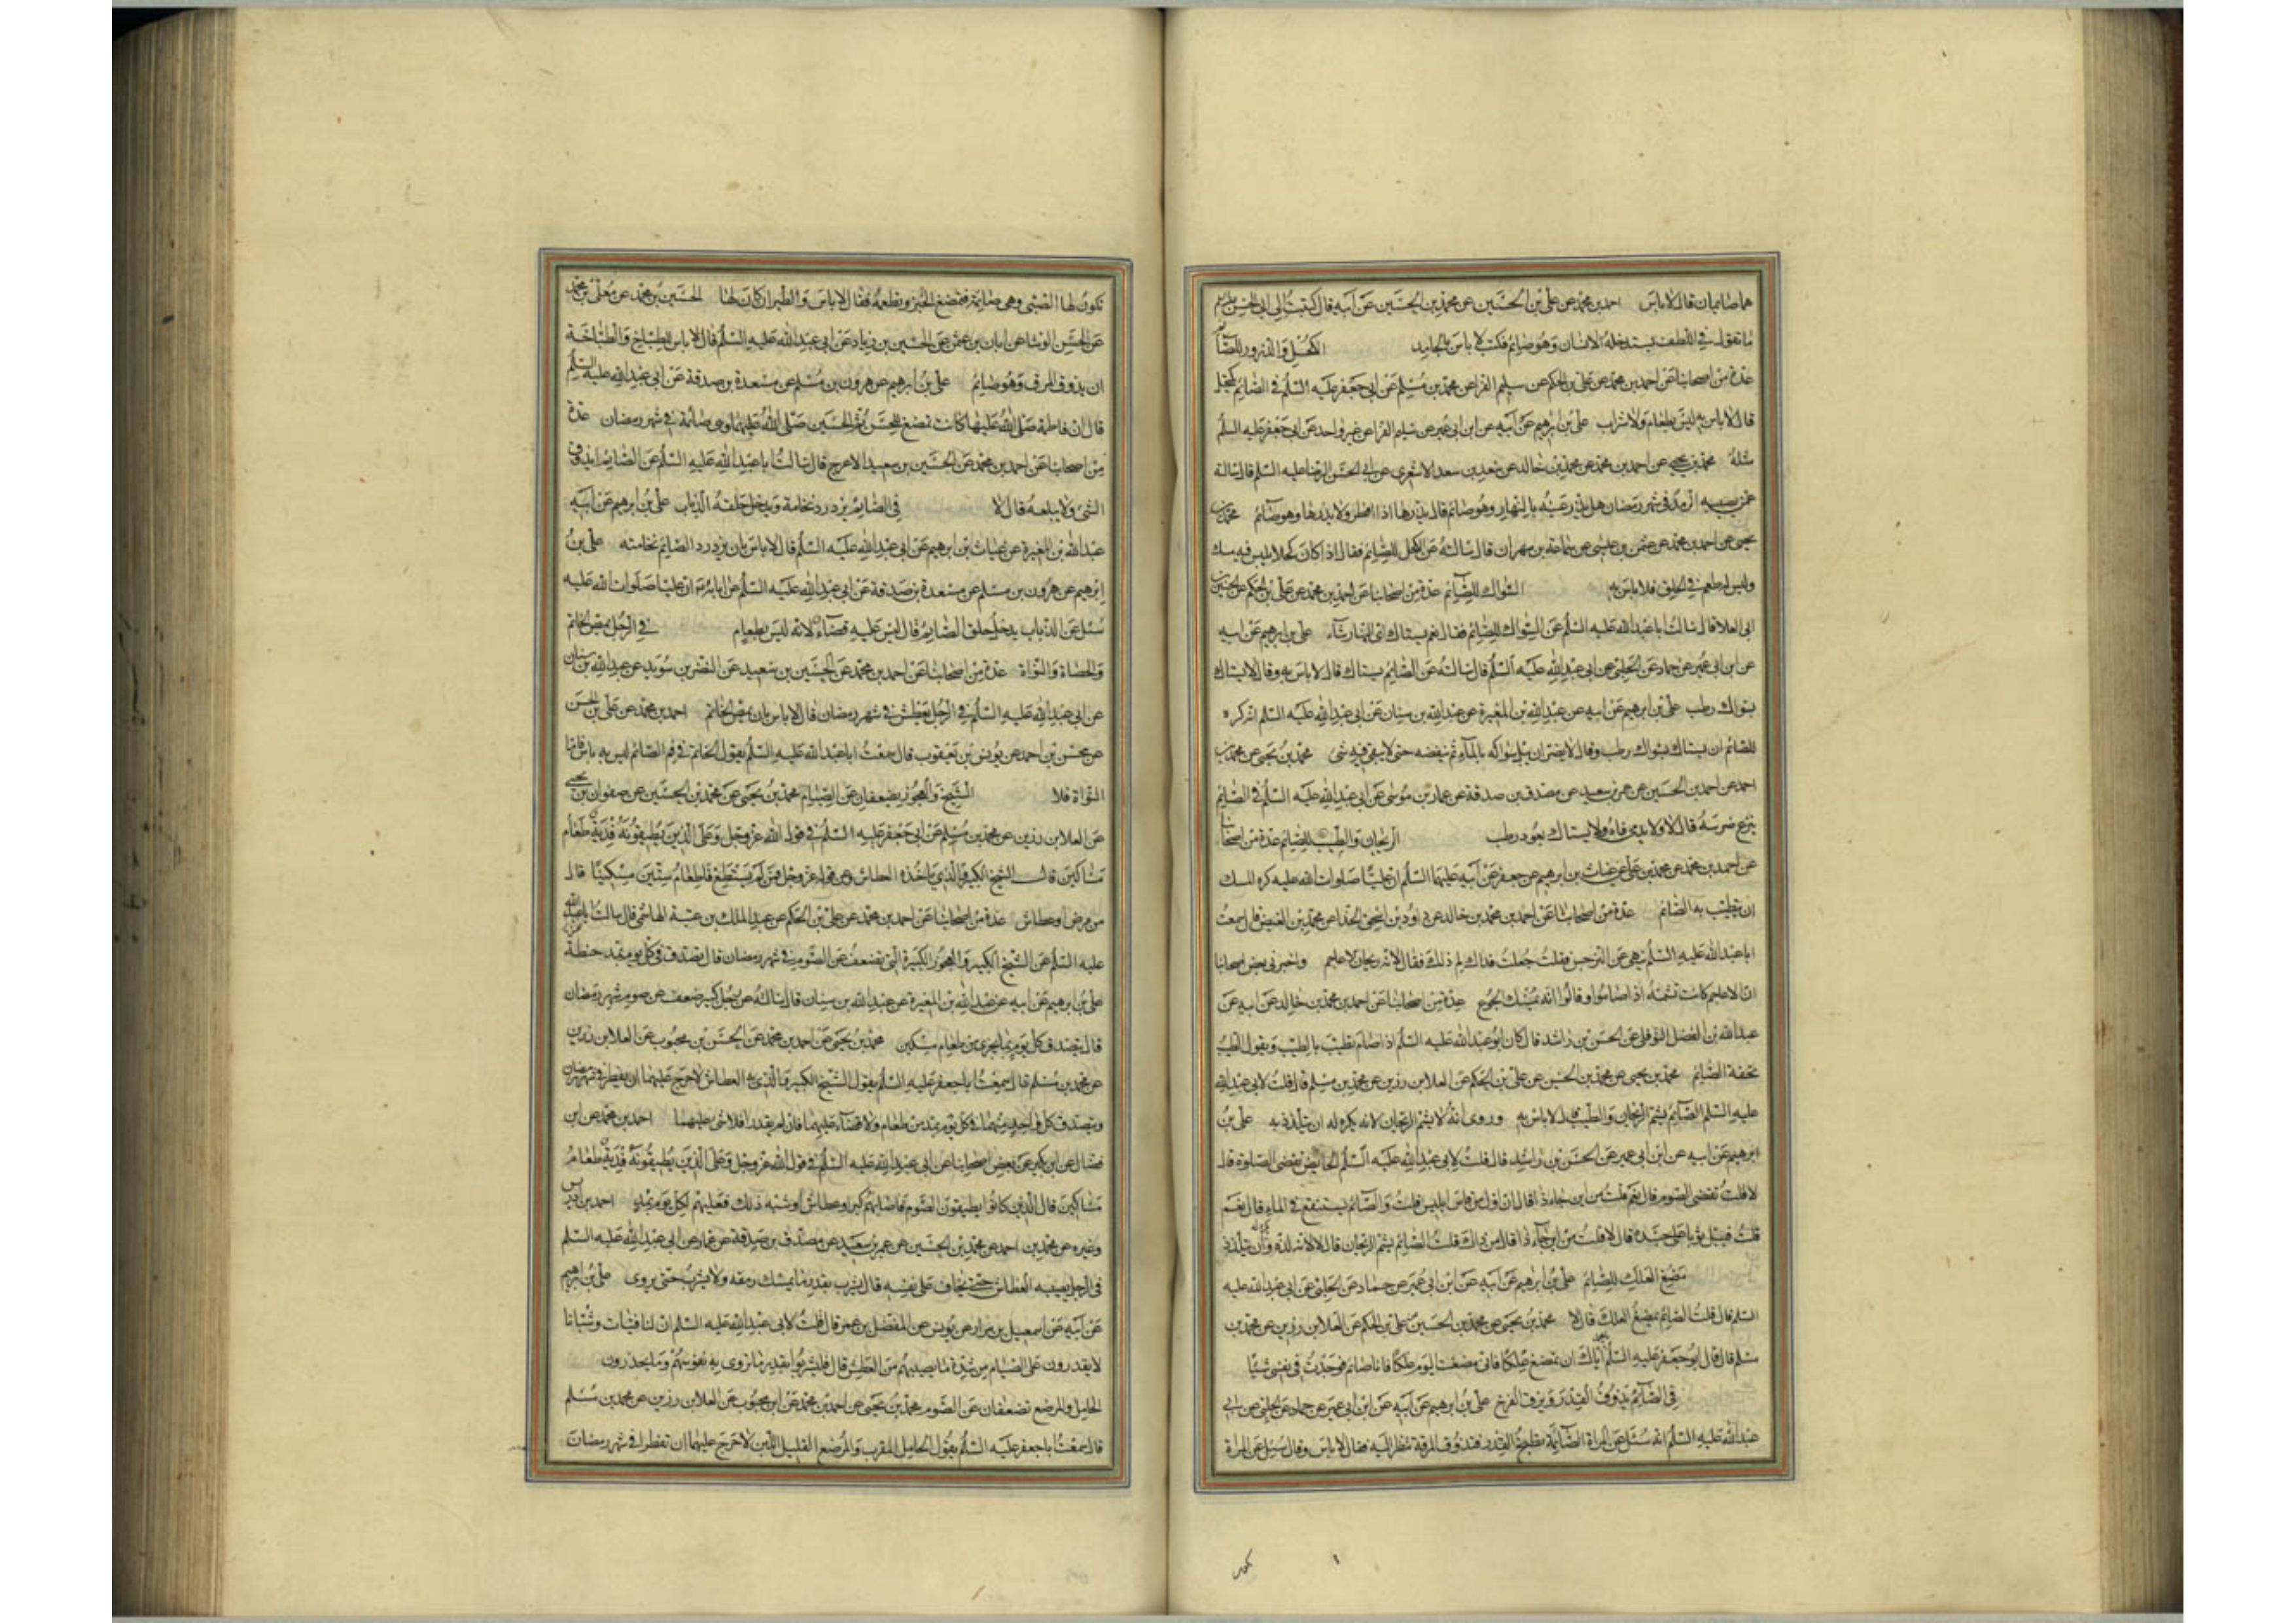 هما صايمان قال لا باس احمد بن محمد عن علي بن الحسين عن محمد بن الحسين عن ابيه قال كتبت الى ابى الحسن
ما تقول في اللطف يستدخله الانسان وهو صايم فكتب لا باس بالجامد الكحل والذرور للصائم
عدة من اصحابنا عن احمد بن محمد عن علي بن الحكم عن سليم الفرا عن محمد بن مسلم عن ابي جعفر عليه السلم في الصايم يكتحل
قال لا باس به ليس بطعام ولا شراب علي بن ابرهيم عن ابيه عن ابن ابي عمير عن سليم الفرا عن غير واحد عن ابي جعفر عليه السلم
مثله محمد بن يحيى عن احمد بن محمد عن محمد بن خالد عن سعد بن سعد الاشعري عن ابي الحسن الرضا عليه السلم قال سالته
عمن يصيبه الرمد في شهر رمضان هل يذر عينه بالنهار وهو صايم قال يذرها اذا افطر ولا يذرها وهو صائم محمد بن
يحيى عن احمد بن محمد عن عثمن بن عيسى عن سماعة بن مهران قال سالته عن الكحل للصايم فقال اذا كان كحلا ليس فيه مسك
وليس له طعم في الحلق فلا باس به السواك للصايم عدة من اصحابنا عن احمد بن محمد عن علي بن الحكم عن الحسين بن
ابى العلا قال سالت ابا عبد الله عليه السلم عن السواك للصائم فقال نعم يستاك اى النهار شاء علي بن ابرهيم عن ابيه
عن ابن ابي عمير عن حماد عن الحلبي عن ابي عبد الله عليه السلم قال سالته عن الصايم يستاك قال لا باس به وقال لا يستاك
بسواك رطب علي بن ابرهيم عن ابيه عن عبد الله بن المغيرة عن عبد الله بن سنان عن ابي عبد الله عليه السلم انه كره
للصائم ان يستاك بسواك رطب وقال لا يضر ان يبل سواكه بالماء ثم ينفضه حتى لا يبقى فيه شئ محمد بن يحيى عن محمد بن
احمد عن احمد بن الحسين عن عمرو بن سعيد عن مصدق بن صدقة عن عمار بن موسى عن ابي عبد الله عليه السلم في الصايم
ينزع ضرسه قال لا ولا يدمي فاه ولا يستاك بعود رطب الريحان والطيب للصايم عدة من اصحابنا
عن احمد بن محمد عن محمد بن علي عن غياث بن ابرهيم عن جعفر عن ابيه عليهما السلم ان عليا صلوات الله عليه كره المسك
ان يتطيب به الصائم عدة من اصحابنا عن احمد بن محمد بن خالد عن داود بن اسحق الحذا عن محمد بن الفيض قال سمعت
ابا عبد الله عليه السلم ينهى عن النرجس فقلت جعلت فداك لم ذلك فقال لانه ريحان الاعاجم واخبرني بعض اصحابنا
ان الاعاجم كانت تشمه اذا صاموا وقالوا انه يمسك الجوع عدة من اصحابنا عن احمد بن محمد بن خالد عن ابيه عن
عبد الله بن الفضل النوفلي عن الحسن بن راشد قال كان ابو عبد الله عليه السلم اذا صام تطيب بالطيب ويقول الطيب
تحفة الصائم محمد بن يحيى عن محمد بن الحسين عن علي بن الحكم عن العلا بن رزين عن محمد بن مسلم قال قلت لابي عبد الله
عليه السلم الصائم يشم الريحان والطيب قال لا باس به وروى انه لا يشم الريحان لانه يكره له ان يتلذذ به علي بن
ابرهيم عن ابيه عن ابن ابي عمير عن الحسن بن راشد قال قلت لابي عبد الله عليه السلم الحايض تقضى الصلوة قال
لا قلت تقضى الصوم قال نعم قلت من اين جاء ذا قال ان اول من قاس ابليس قلت والصائم يستنقع في الماء قال نعم
قلت فيبل ثوبا على جسده قال لا قلت من اين جاء ذا قال من ذاك قلت الصايم يشم الريحان قال لا لانه لذة ويكره له ان يتلذذ
مضغ العلك للصايم علي بن ابرهيم عن ابيه عن ابن ابي عمير عن حماد عن الحلبي عن ابي عبد الله عليه
السلم قال قلت الصايم يمضغ العلك قال لا محمد بن يحيى عن محمد بن الحسين عن علي بن الحكم عن العلا بن رزين عن محمد بن
مسلم قال قال ابو جعفر عليه السلم اياك ان تمضغ علكا فانى مضغت اليوم علكا وانا صائم فوجدت في نفسى شيئا
في الصائم يذوق القدر ويزق الفرخ علي بن ابرهيم عن ابيه عن ابن ابي عمير عن حماد عن الحلبي عن ابي
عبد الله عليه السلم انه سئل عن المراة الصائمة تطبخ القدر فتذوق المرقة تنظر اليه فقال لا باس وقال سئل عن المراة
تكون لها الصبى وهى صايمة فتمضغ الخبز وتطعمه فقال لا باس والطير ان كان لها الحسين بن محمد عن معلى بن محمد
عن الحسن الوشا عن ابان بن عثمن عن الحسين بن زياد عن ابي عبد الله عليه السلم قال لا باس للطباخ والطباخة
ان يذوق المرق وهو صايم علي بن ابرهيم عن هرون بن مسلم عن مسعدة بن صدقة عن ابي عبد الله عليه السلم
قال ان فاطمة صلى الله عليها كانت تمضغ للحسن ثم للحسين صلى الله عليهما وهي صائمة في شهر رمضان عدة
من اصحابنا عن احمد بن محمد عن الحسين بن سعيد الاعرج قال سالت ابا عبد الله عليه السلم عن الصايم ايذوق
الشئ ولا يبلعه قال لا في الصايم يزدرد نخامة ويدخل حلقه الذباب علي بن ابرهيم عن ابيه
عبد الله بن المغيرة عن غياث بن ابرهيم عن ابي عبد الله عليه السلم قال لا باس بان يزدرد الصايم نخامته علي بن
ابرهيم عن هرون بن مسلم عن مسعدة بن صدقة عن ابي عبد الله عليه السلم عن ابائه ان عليا صلوات الله عليه
سئل عن الذباب يدخل حلق الصايم قال ليس عليه قضاء لانه ليس بطعام في الرجل يمص الخاتم
والحصاة والنواة عدة من اصحابنا عن احمد بن محمد عن الحسين بن سعيد عن النضر بن سويد عن عبد الله بن سنان
عن ابي عبد الله عليه السلم في الرجل يعطش في شهر رمضان قال لا باس بان يمص الخاتم احمد بن محمد عن علي بن الحسن
عن محسن بن احمد عن يونس بن يعقوب قال سمعت ابا عبد الله عليه السلم يقول الخاتم في فم الصائم ليس به باس فاما
النواة فلا الشيخ والعجوز يضعفان عن الصيام محمد بن يحيى عن محمد بن الحسين عن صفوان بن يحيى
عن العلا بن رزين عن محمد بن مسلم عن ابي جعفر عليه السلم في قول الله عز وجل وعلى الذين يطيقونه فدية طعام
مساكين قال الشيخ الكبير والذي ياخذه العطاش وعن قوله عز وجل فمن لم يستطع فاطعام ستين مسكينا قال
من مرض او عطاش عدة من اصحابنا عن احمد بن محمد عن علي بن الحكم عن عبد الملك بن عتبة الهاشمى قال سالت ابا عبد الله
عليه السلم عن الشيخ الكبير والعجوز الكبيرة التى تضعف عن الصوم في شهر رمضان قال يتصدق في كل يوم بمد حنطة
علي بن ابرهيم عن ابيه عن عبد الله بن المغيرة عن عبد الله بن سنان قال سالته عن رجل كبير ضعف عن صوم شهر رمضان
قال يتصدق كل يوم بما يجزى من طعام مسكين محمد بن يحيى عن احمد بن محمد عن الحسن بن محبوب عن العلا بن رزين
عن محمد بن مسلم قال سمعت ابا جعفر عليه السلم يقول الشيخ الكبير والذى به العطاش لا حرج عليهما ان يفطرا في شهر رمضان
ويتصدق كل واحد منهما في كل يوم بمد من طعام ولا قضاء عليهما فان لم يقدرا فلا شئ عليهما احمد بن محمد عن ابن
فضال عن ابن بكير عن بعض اصحابنا عن ابي عبد الله عليه السلم في قول الله عز وجل وعلى الذين يطيقونه فدية طعام
مساكين قال الذين كانوا يطيقون الصوم فاصابهم كبر او عطاش او شبه ذلك فعليهم لكل يوم مد احمد بن ادريس
وغيره عن محمد بن احمد عن محمد بن الحسين عن عمرو بن سعيد عن مصدق بن صدقة عن عمار عن ابي عبد الله عليه السلم
فى الرجل يصيبه العطاش حتى يخاف على نفسه قال يشرب بقدر ما يمسك رمقه ولا يشرب حتى يروى علي بن ابرهيم
عن ابيه عن اسمعيل بن مرار عن يونس عن المفضل بن عمر قال قلت لابي عبد الله عليه السلم ان لنا فتيات وشبانا
لا يقدرون على الصيام من شدة ما يصيبهم من العطش قال فليشربوا بقدر ما تروى به نفوسهم وما يحذرون
الحامل والمرضع تضعفان عن الصوم محمد بن يحيى عن احمد بن محمد عن ابن محبوب عن العلا بن رزين عن محمد بن مسلم
قال سمعت ابا جعفر عليه السلم يقول الحامل المقرب والمرضع القليل اللبن لا حرج عليهما ان تفطرا في شهر رمضان